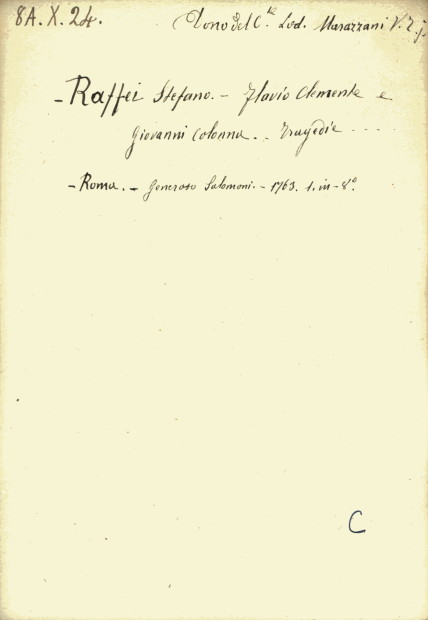 8A. X. 24.
Dono del C.te Lod. Marazzani V.
- Raffei Stefano. - Flavio Clemente e
Giovanni Colonna. - Tragedie ...
- Roma. - Generoso Salomoni. - 1763. 1. in-8º.
C